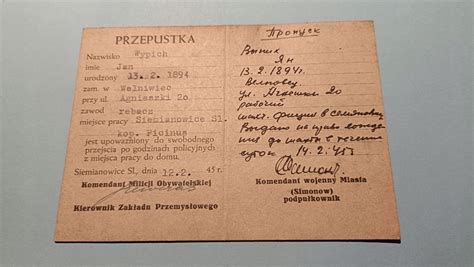 PRZEPUSTKA
Nazwisko Wypich
imię Jan
urodzony 13.2.1894
zam. w Wełnowiec
przy ul. Agnieszki 20
zawód rebacz
miejsce pracy Siemianowice Śl.
kop. Ficinus
jest upoważniony do swobodnego
przejścia po godzinach policyjnych
z miejsca pracy do domu.
Siemianowice Śl., dnia 12.2. 45 r.
Komendant Milicji Obywatelskiej
Kierownik Zakładu Przemysłowego
Пропуск
Выпих
Ян
13.2.1894г.
ул. 20
рабочий
шахт. Фицин в
Выдано на право
до шахты в течении
суток 14.2.45г.
Komendant wojenny Miasta
(Simonow)
podpułkownik